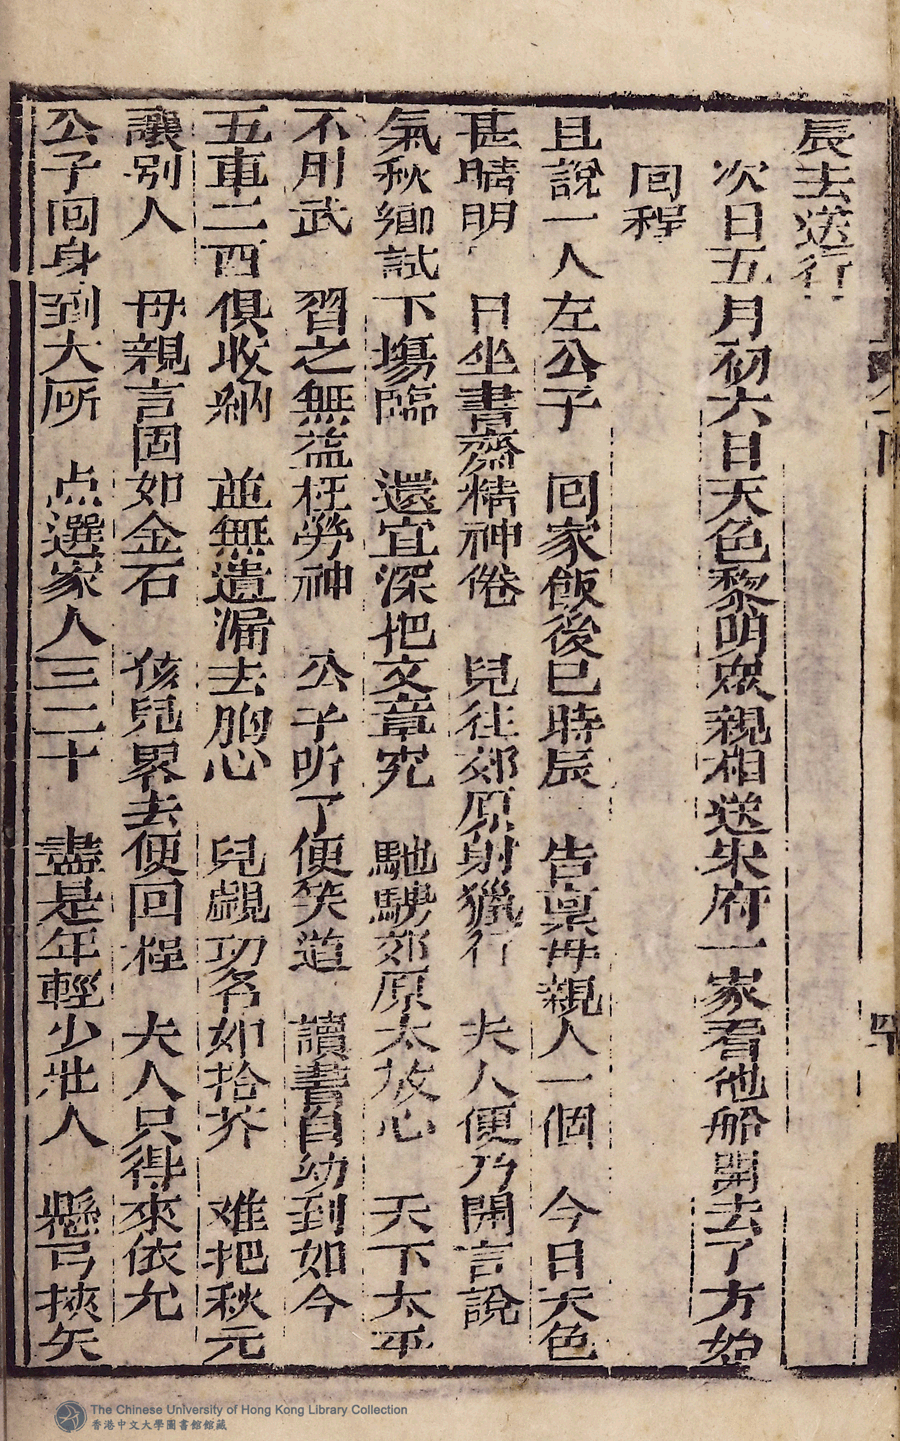 辰去送行
次日五月初六日天色黎明衆親相送朱府一家看他船開去了方始
囘程
且說一人左公子　囘家飯後已時辰　告禀母親人一個　今日天色
甚晴明　日坐書齋精神倦　兒往郊原射獵行　夫人便乃開言說
氣秋鄉試下塲臨　還宜深把文章究　馳騁郊原太放心　天下太平
不用武　習之無益枉勞神　公子听了便笑道　讀書自幼到如今
五車二酉俱收納　並無遺漏去胸心　兒覷功名如拾芥　难把秋元
讓别人　母親言固如金石　孩兒畧去便回程　夫人只得來依允
公子囘身到大厛　点選家人三二十　盡是年輕少壯人　懸弓挾矢
The Chinese University of Hong Kong Library Collection
香港中文大學圖書館館藏